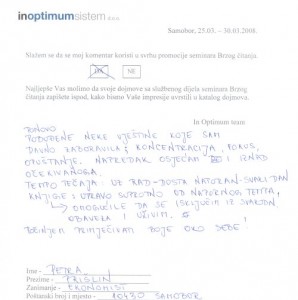 inoptimumsistem d.o.o.
Samobor, 25.03. - 30.03.2008.
Slažem se da se moj komentar koristi u svrhu promocije seminara Brzog čitanja.
DA NE
Najljepše Vas molimo da svoje dojmove sa službenog dijela seminara Brzog
čitanja zapišete ispod, kako bismo Vaše impresije uvrstili u katalog dojmova.
In Optimum team
PONOVO
POBUĐENE NEKE VJEŠTINE KOJE SAM
DAVNO ZABORAVILA; KONCENTRACIJA, FOKUS,
OPUŠTANJE. NAPREDAK OSJEĆAM I IZNAD
OČEKIVANOGA.
TEMPO TEČAJA: UZ RAD - DOSTA NATRPAN - SVAKI DAN
KNJIGE I UPRAVO SUPROTNO OD NAPORNOG TEMPA,
OMOGUĆILE DA SE ISKLJUČIM IZ SVAKODN
OBAVEZA I UŽIVIM.
POČINJEM PRIMJEĆIVATI BOJE OKO SEBE!
Ime - PETRA
Prezime - PRISLIN
Zanimanje - EKONOMIST
Poštanski broj i mjesto - 10430 SAMOBOR